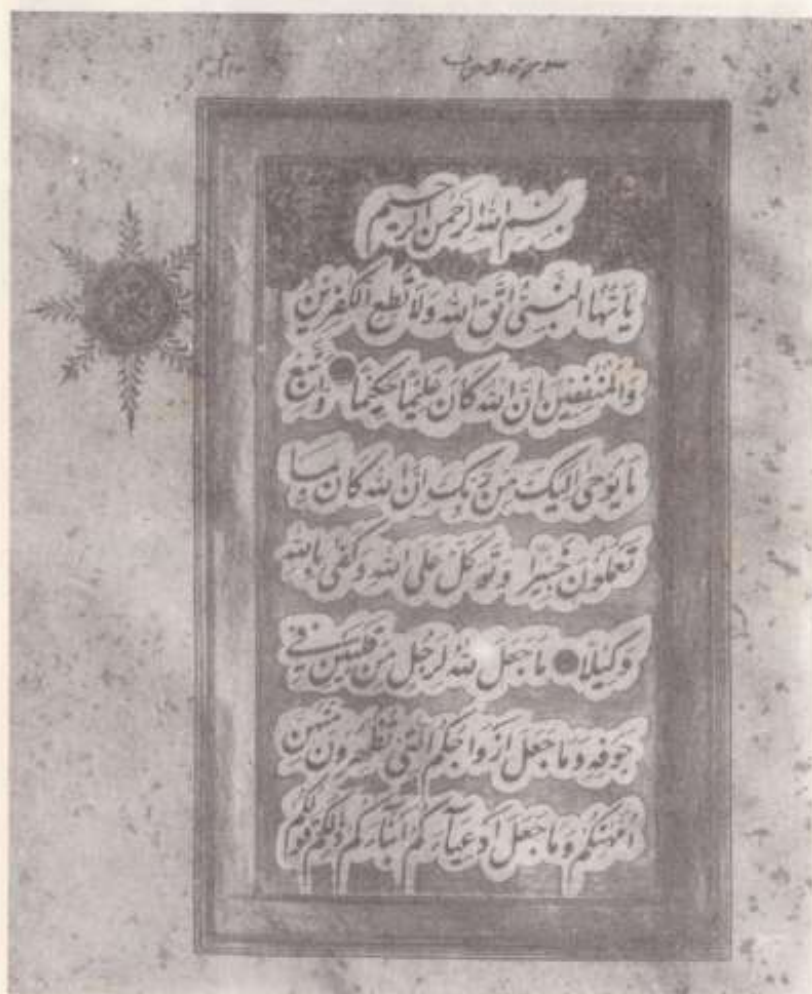 سورة الاحزاب
بسم الله الرحمن الرحيم
يٰٓاَيُّهَا النَّبِىُّ اتَّقِ اللهَ وَلَا تُطِعِ الْكٰفِرِيْنَ
وَالْمُنٰفِقِيْنَ اِنَّ اللهَ كَانَ عَلِيْمًا حَكِيْمًا وَاتَّبِعْ
مَا يُوْحٰى اِلَيْكَ مِنْ رَبِّكَ اِنَّ اللهَ كَانَ بِمَا
تَعْمَلُوْنَ خَبِيْرًا وَتَوَكَّلْ عَلَى اللهِ وَكَفٰى بِاللهِ
وَكِيْلًا مَا جَعَلَ اللهُ لِرَجُلٍ مِنْ قَلْبَيْنِ فِىْ
جَوْفِهٖ وَمَا جَعَلَ اَزْوَاجَكُمُ الّٰٓئِىْ تُظٰهِرُوْنَ مِنْهُنَّ
اُمَّهٰتِكُمْ وَمَا جَعَلَ اَدْعِيَآءَكُمْ اَبْنَآءَكُمْ ذٰلِكُمْ قَوْلُكُمْ